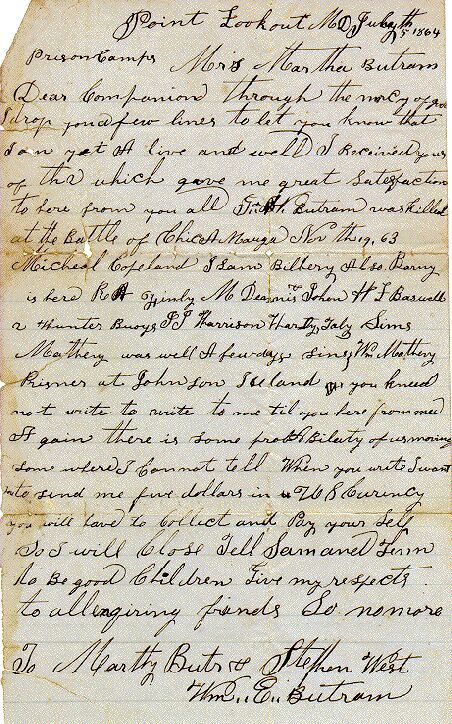 Point Lookout MD July th 5 1864
Prison Camps Mris Martha Butram
Dear Companion through the mercy of God
I drop you a few lines to let you know that
I am yet A live and well I Received yours
of the which gave me great Satisfaction
to here from you all Butram was killed
at the Battle of ChicAMauga Nov th 19, 63
Micheal Copeland I Sam Bilbery Also Barny
is here RA M Dennis John H L Baswell
2 Hunter Buoys P J Harrison Hardy, Sims
Mathery was well A few days sins Wm Mathery
Prisner at Johnson Iseland you kneed
not write to write to me til you here from me
A gain there is some probability of us moving
som where I Cannot tell When you write I want
to send me five dollars in U S Curency
you will have to Collect and Pay your Self
So I will Close Tell Sam and
to Be good Children Give my respects
to all enquiring friends So no more
To Marthy Butr Stephen West
Wm. E. Butram